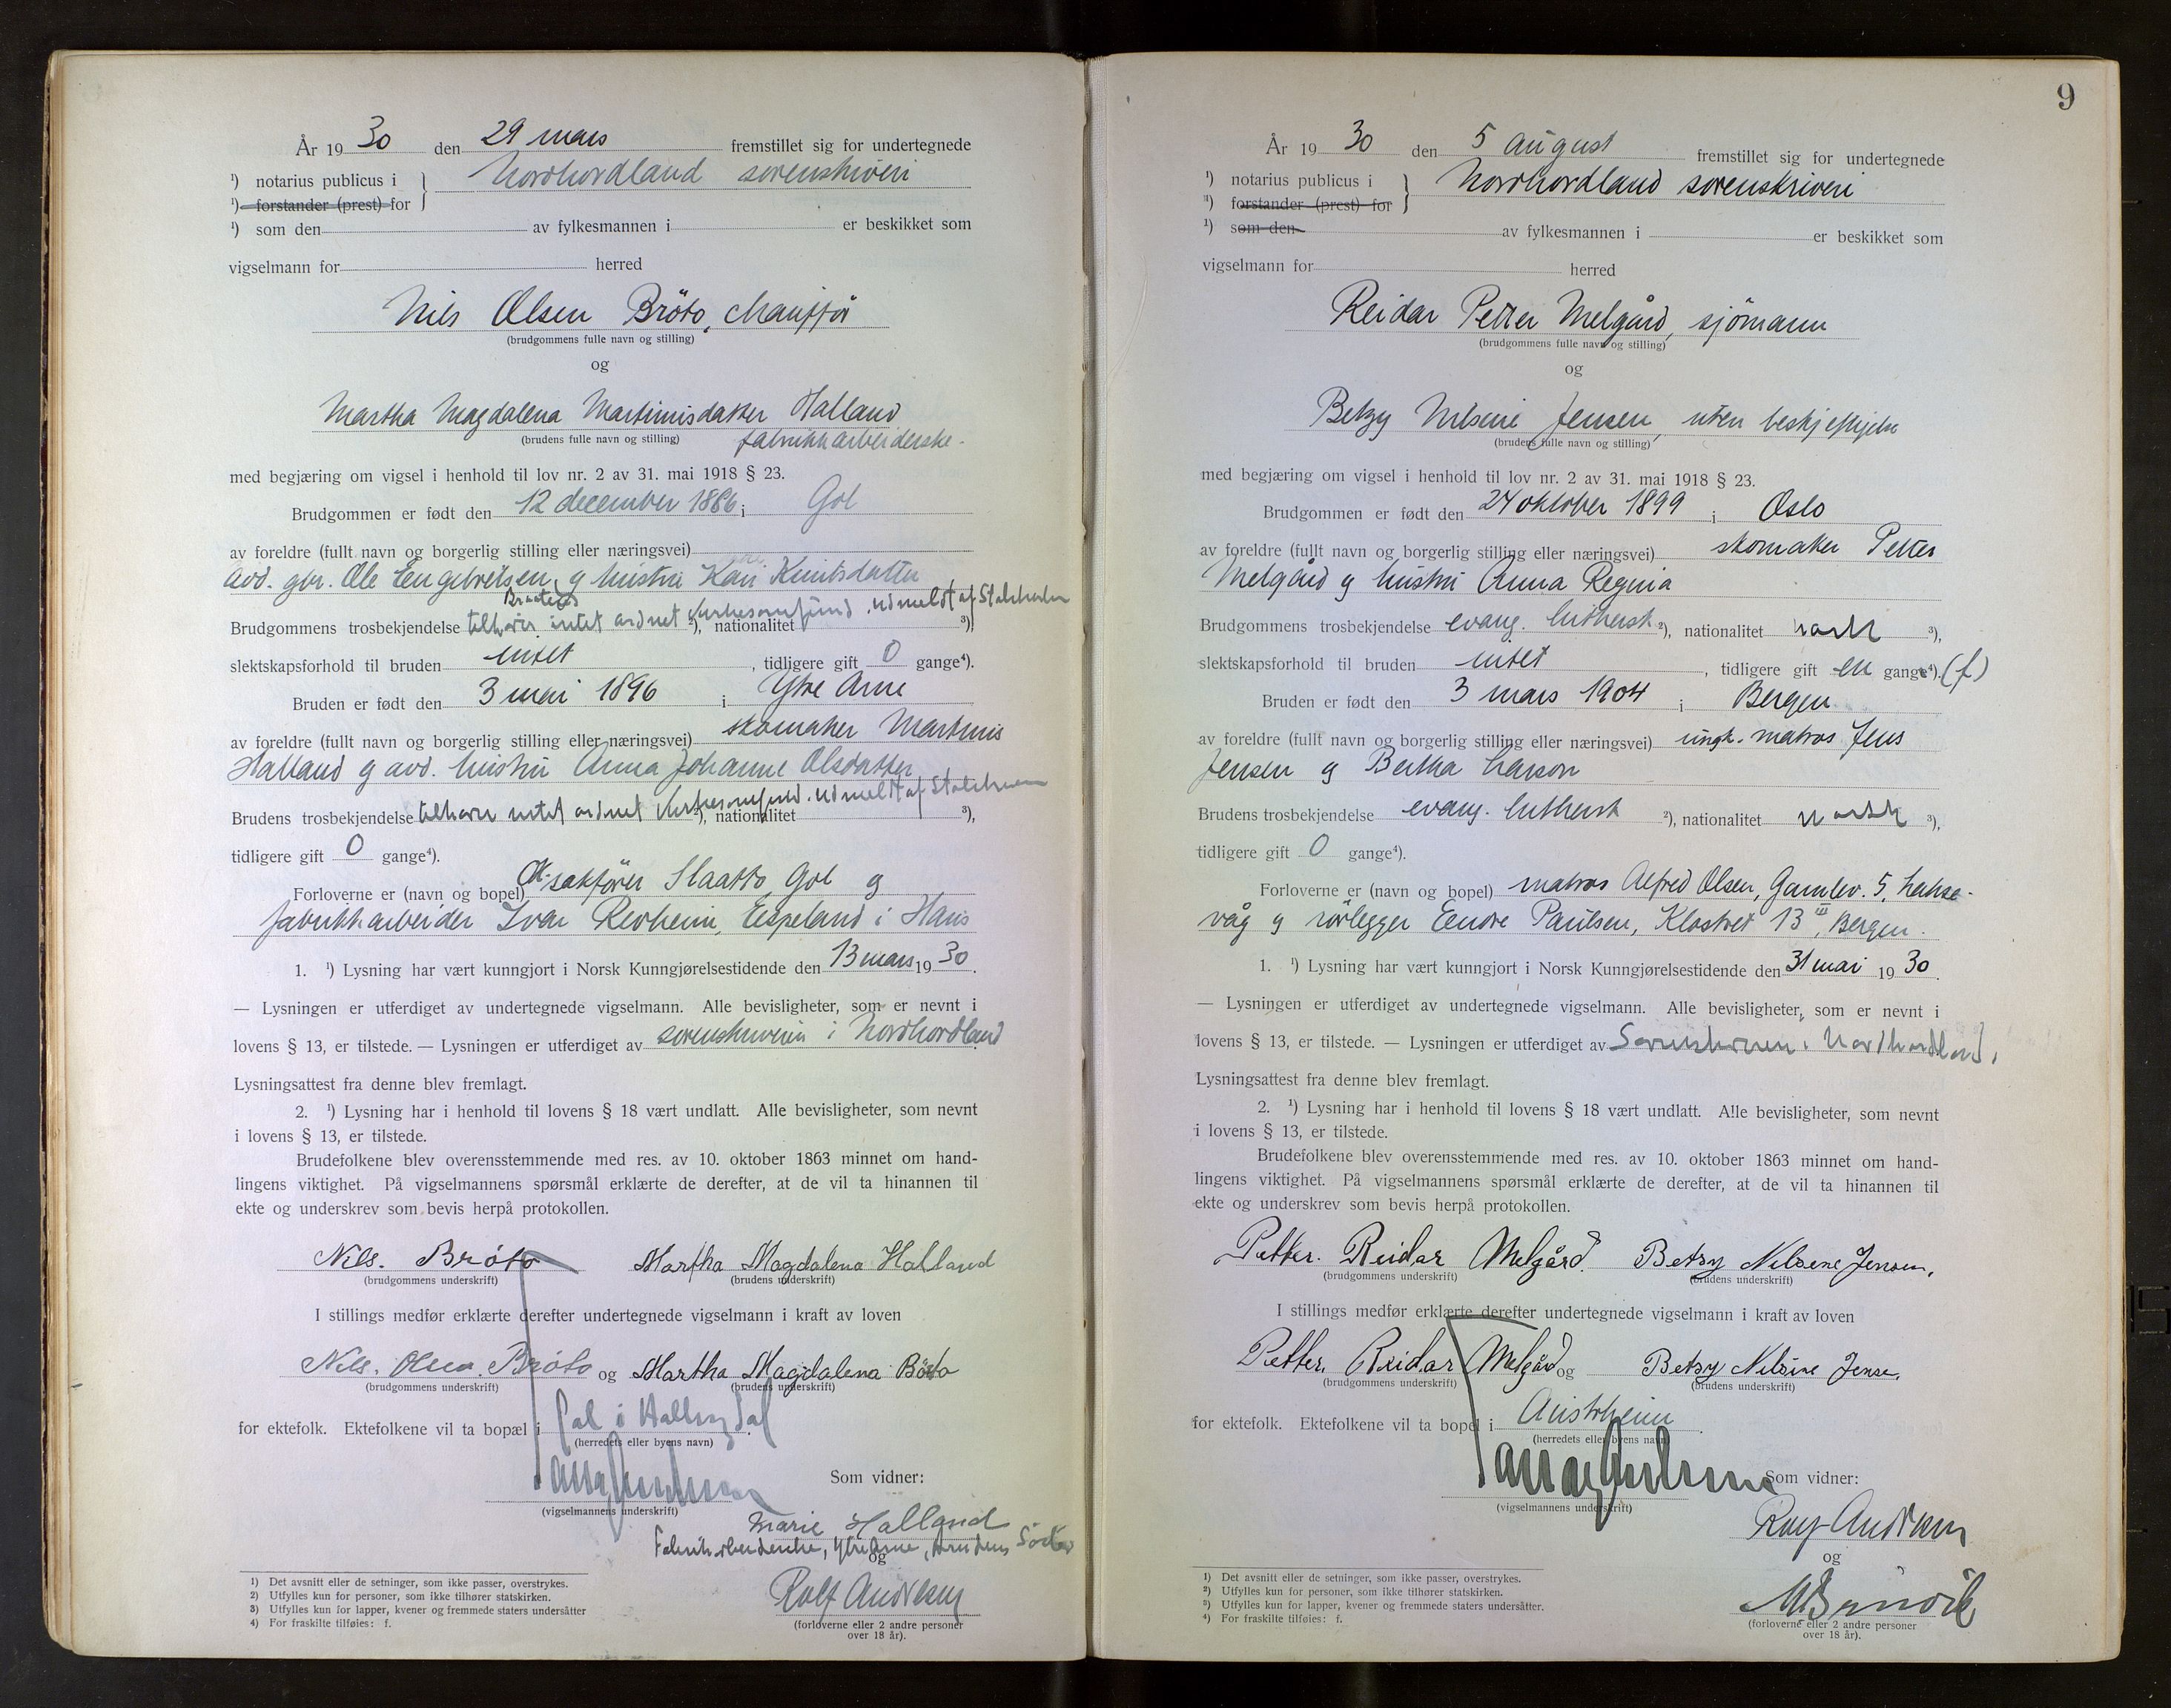 År 19 30 den 29 mars fremstillet sig for undertegnede
¹) notarius publicus i } Nordhordland sorenskriveri
¹) forstander (prest) for
¹) som den av fylkesmannen i er beskikket som
vigselmann for herred
Nils Olsen Bröto, chauffør
(brudgommens fulle navn og stilling)
og
Martha Magdalena Martinusdatter Halland
(brudens fulle navn og stilling) fabrikkarbeiderske.
med begjæring om vigsel i henhold til lov nr. 2 av 31. mai 1918 § 23.
Brudgommen er født den 12 december 1886 i Gol
av foreldre (fullt navn og borgerlig stilling eller næringsvei)
avd. gbr. Ole Engebretsen og hustru Kari Knutsdatter
Braaten
Brudgommens trosbekjendelse tilhører intet ordnet kirkesamfund. Udmeldt af Statskirken ²), nationalitet ³),
slektskapsforhold til bruden intet , tidligere gift 0 gange⁴).
Bruden er født den 3 mai 1896 i Ytre Arne
av foreldre (fullt navn og borgerlig stilling eller næringsvei) skomaker Martinus
Halland og avd. hustru Anna Johanne Olsdatter
Brudens trosbekjendelse tilhører intet ordnet kirkesamfund. Udmeldt af Statskirken ²), nationalitet ³),
tidligere gift 0 gange⁴).
Forloverne er (navn og bopel) sakfører Slaatto, Gol og
fabrikkarbeider Ivar Revheim, Espeland i Haus
1. ¹) Lysning har vært kunngjort i Norsk Kunngjørelsestidende den 13 mars 19 30.
— Lysningen er utferdiget av undertegnede vigselmann. Alle bevisligheter, som er nevnt i
lovens § 13, er tilstede. — Lysningen er utferdiget av sorenskriveren i Nordhordland
Lysningsattest fra denne blev fremlagt.
2. ¹) Lysning har i henhold til lovens § 18 vært undlatt. Alle bevisligheter, som nevnt
i lovens § 13, er tilstede.
Brudefolkene blev overensstemmende med res. av 10. oktober 1863 minnet om hand-
lingens viktighet. På vigselmannens spørsmål erklærte de derefter, at de vil ta hinannen til
ekte og underskrev som bevis herpå protokollen.
Nils. Bröto Martha Magdalena Halland
(brudgommens underskrift) (brudens underskrift)
I stillings medfør erklærte derefter undertegnede vigselmann i kraft av loven
Nils. Olsen. Bröto og Martha Magdalena Böto
(brudgommens underskrift) (brudens underskrift)
for ektefolk. Ektefolkene vil ta bopæl i Gol i Hallingdal
(herredets eller byens navn)
Som vidner:
(vigselmannens underskrift)
Marie Halland
Fabrikarbeiderske, Ytre Arne, brudens Söster
og
Rolf Andresen
(forloverne eller 2 andre personer
over 18 år).
1) Det avsnitt eller de setninger, som ikke passer, overstrykes.
2) Utfylles kun for personer, som ikke tilhører statskirken.
3) Utfylles kun for lapper, kvener og fremmede staters undersåtter
4) For fraskilte tilføies: f.
9
År 19 30 den 5 august fremstillet sig for undertegnede
¹) notarius publicus i } Nordhordland sorenskriveri
¹) forstander (prest) for
¹) som den av fylkesmannen i er beskikket som
vigselmann for herred
Reidar Petter Melgård, sjömann
(brudgommens fulle navn og stilling)
og
Betzy Nilsine Jensen, uten beskjeftigelse
(brudens fulle navn og stilling)
med begjæring om vigsel i henhold til lov nr. 2 av 31. mai 1918 § 23.
Brudgommen er født den 24 oktober 1899 i Oslo
av foreldre (fullt navn og borgerlig stilling eller næringsvei) skomaker Petter
Melgård og hustru Anna Regina
Brudgommens trosbekjendelse evang. luthersk ²), nationalitet norsk ³),
slektskapsforhold til bruden intet , tidligere gift en gange⁴). (f)
Bruden er født den 3 mars 1904 i Bergen
av foreldre (fullt navn og borgerlig stilling eller næringsvei) ungk. matros Jens
Jensen og Bertha Larson
Brudens trosbekjendelse evang. luthersk ²), nationalitet norsk ³),
tidligere gift 0 gange⁴).
Forloverne er (navn og bopel) matros Alfred Olsen, Gamlev. 5, Lakse-
våg og rörlegger Endre Paulsen, Klostret 13 III, Bergen.
1. ¹) Lysning har vært kunngjort i Norsk Kunngjørelsestidende den 31 mai 19 30.
— Lysningen er utferdiget av undertegnede vigselmann. Alle bevisligheter, som er nevnt i
lovens § 13, er tilstede. — Lysningen er utferdiget av Sorenskriveren i Nordhordland.
Lysningsattest fra denne blev fremlagt.
2. ¹) Lysning har i henhold til lovens § 18 vært undlatt. Alle bevisligheter, som nevnt
i lovens § 13, er tilstede.
Brudefolkene blev overensstemmende med res. av 10. oktober 1863 minnet om hand-
lingens viktighet. På vigselmannens spørsmål erklærte de derefter, at de vil ta hinannen til
ekte og underskrev som bevis herpå protokollen.
Petter. Reidar Melgård. Betsy Nilsene Jensen.
(brudgommens underskrift) (brudens underskrift)
I stillings medfør erklærte derefter undertegnede vigselmann i kraft av loven
Petter. Reidar Melgård og Betsy Nilsine Jensen.
(brudgommens underskrift) (brudens underskrift)
for ektefolk. Ektefolkene vil ta bopel i Austrheim.
(herredets eller byens navn)
Som vidner:
(vigselmannens underskrift)
Rolf Andresen
og
(forloverne eller 2 andre personer
over 18 år).
1) Det avsnitt eller de setninger, som ikke passer, overstrykes.
2) Utfylles kun for personer, som ikke tilhører statskirken.
3) Utfylles kun for lapper, kvener og fremmede staters undersåtter.
4) For fraskilte tilføies: f.